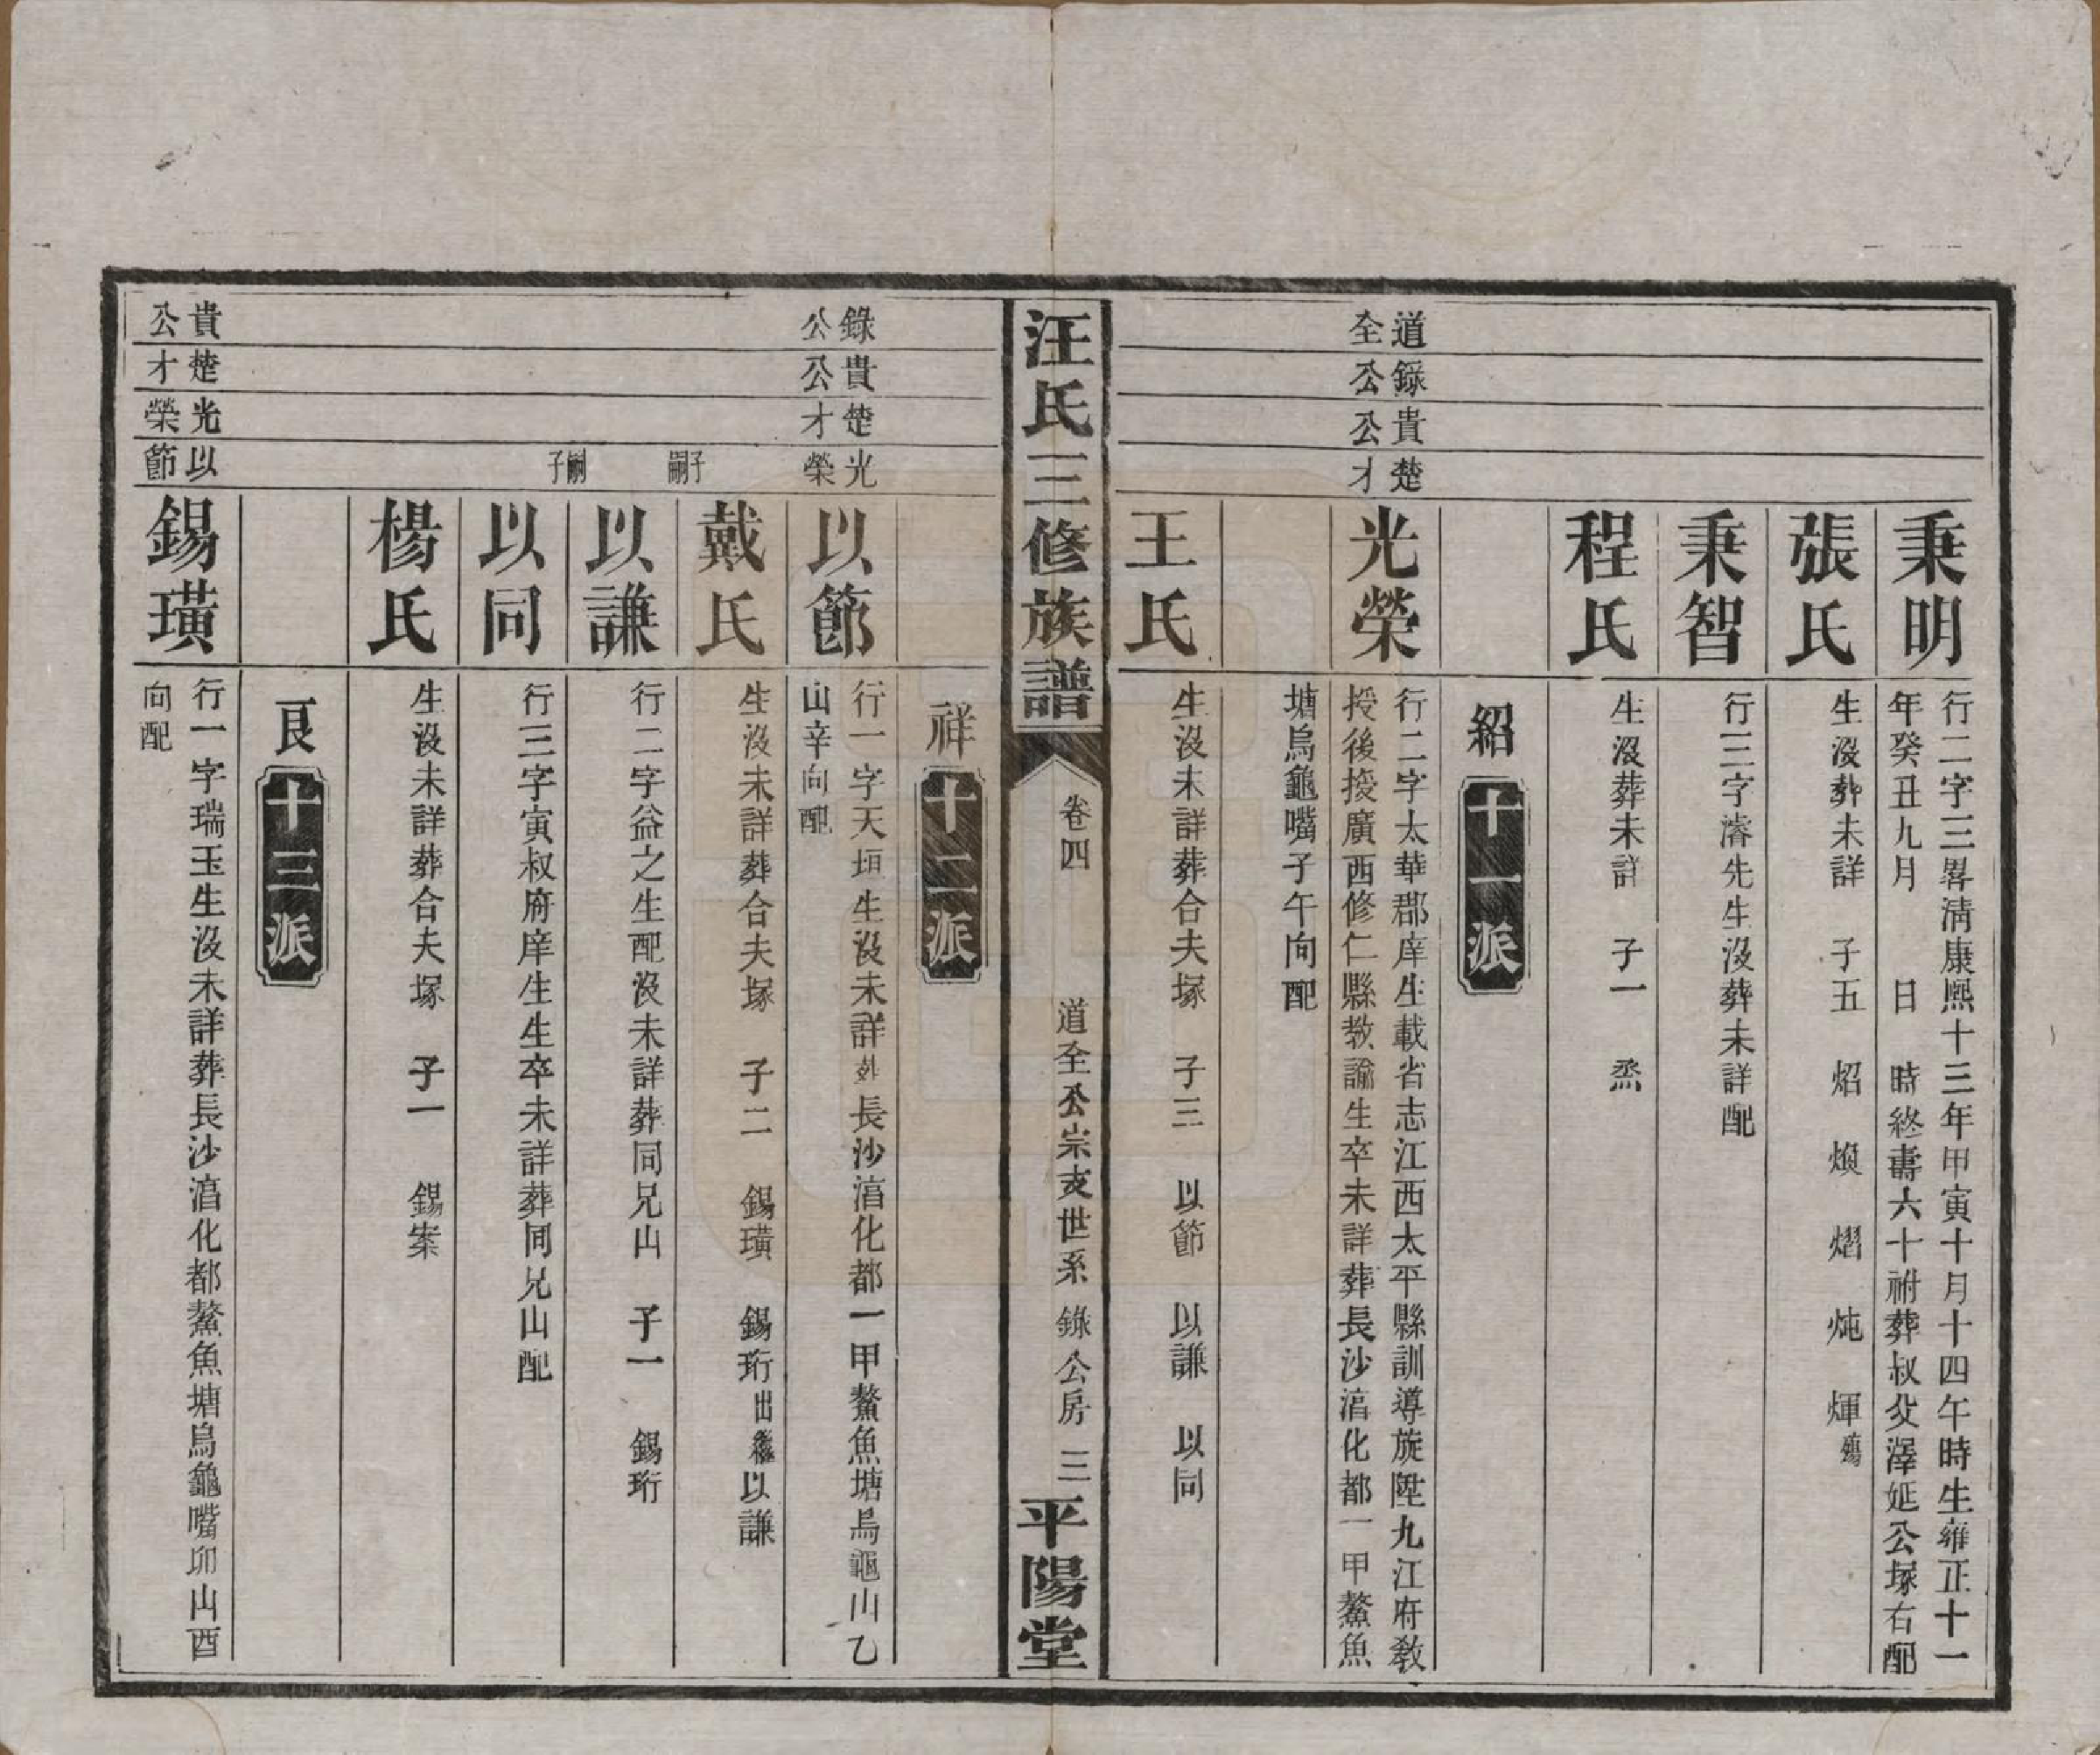 秉明
行二字三畧清康熙十三年甲寅十月十四午時生雍正十一
年癸丑九月　日　時終壽六十祔葬叔父澤延公塚右配
張氏
生沒葬未詳　子五　炤　煥　熠　炖　煇殤
秉智
行三字濬先生沒葬未詳配
程氏
生沒葬未詳　子一　烝
紹十一派
道全
錄公
貴公
楚才
光榮
行二字太華郡庠生載省志江西太平縣訓導旋陞九江府敎
授後授廣西修仁縣敎諭生卒未詳葬長沙㵮化都一甲鰲魚
塘烏龜嘴子午向配
王氏
生沒未詳葬合夫塚　子三　以節　以謙　以同
汪氏三修族譜
卷四
道全公崇支世系　錄公房　三
平陽堂
祥十二派
錄公
貴公
楚才
光榮
以節
行一字天垣生沒未詳葬長沙㵮化都一甲鰲魚塘烏龜山乙
山辛向配
戴氏
生沒未詳葬合夫塚　子二　錫璜　錫珩出繼以謙
嗣子
以謙
行二字益之生配沒未詳葬同兄山　子一　錫珩
嗣子
以同
行三字寅叔府庠生生卒未詳葬同兄山配
楊氏
生沒未詳葬合夫塚　子一　錫案
良十三派
貴公
楚才
光榮
以節
錫璜
行一字瑞玉生沒未詳葬長沙㵮化都鰲魚塘烏龜嘴卯山酉
向配